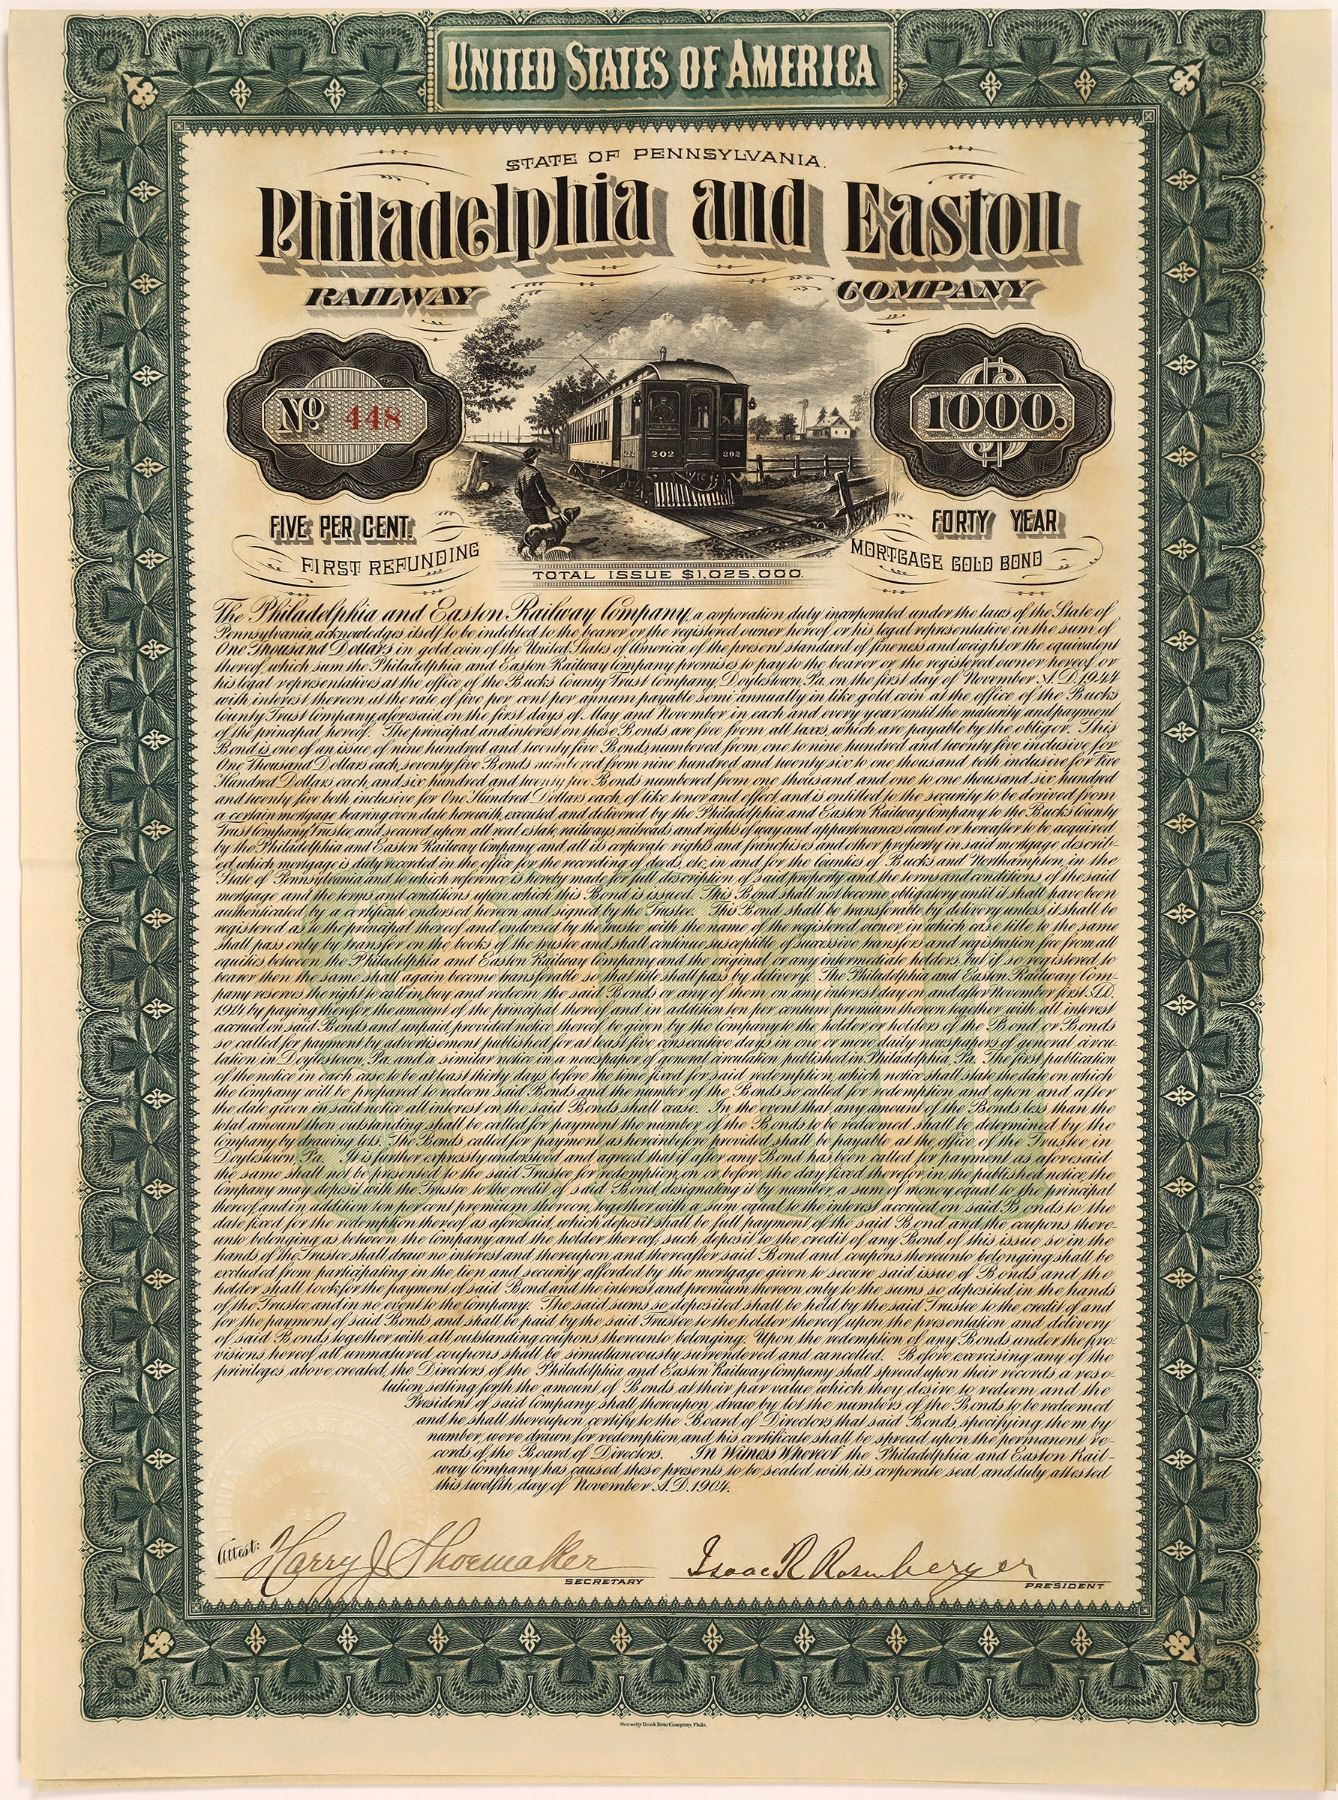 UNITED STATES OF AMERICA
STATE OF PENNSYLVANIA.
Philadelphia and Easton
RAILWAY COMPANY
No. 448
$1000.
202 202 202
FIVE PER CENT. FORTY YEAR
FIRST REFUNDING MORTGAGE GOLD BOND
TOTAL ISSUE $1,025,000.
The Philadelphia and Easton Railway Company, a corporation duly incorporated under the laws of the State of
Pennsylvania, acknowledges itself to be indebted to the bearer or the registered owner hereof or his legal representative in the sum of
One Thousand Dollars in gold coin of the United States of America of the present standard of fineness and weight or the equivalent
thereof, which sum the Philadelphia and Easton Railway Company promises to pay to the bearer or the registered owner hereof or
his legal representatives at the office of the Bucks County Trust Company, Doylestown, Pa. on the first day of November A.D. 1944
with interest thereon at the rate of five per cent per annum payable semi-annually in like gold coin at the office of the Bucks
County Trust Company aforesaid, on the first days of May and November in each and every year until the maturity and payment
of the principal hereof. The principal and interest on these Bonds are free from all taxes, which are payable by the obligor. This
Bond is one of an issue of nine hundred and twenty five Bonds numbered from one to nine hundred and twenty five inclusive for
One Thousand Dollars each, seventy five Bonds numbered from nine hundred and twenty six to one thousand both inclusive for Five
Hundred Dollars each, and six hundred and twenty five Bonds numbered from one thousand and one to one thousand six hundred
and twenty five both inclusive for One Hundred Dollars each, of like tenor and effect, and is entitled to the security to be derived from
a certain mortgage bearing even date herewith, executed and delivered by the Philadelphia and Easton Railway Company to the Bucks County
Trust Company, Trustee and secured upon all real estate, railways, railroads and rights of way and appurtenances owned or hereafter to be acquired
by the Philadelphia and Easton Railway Company and all its corporate rights and franchises and other property in said mortgage describ-
ed, which mortgage is duly recorded in the office for the recording of deeds, etc., in and for the Counties of Bucks and Northampton, in the
State of Pennsylvania and to which reference is hereby made for full description of said property and the terms and conditions of the said
mortgage and the terms and conditions upon which this Bond is issued. This Bond shall not become obligatory until it shall have been
authenticated by a certificate endorsed hereon and signed by the Trustee. This Bond shall be transferable by delivery unless it shall be
registered as to the principal thereof and endorsed by the trustee with the name of the registered owner, in which case title to the same
shall pass only by transfer on the books of the trustee and shall continue susceptible of successive transfers and registration free from all
equities between the Philadelphia and Easton Railway Company and the original or any intermediate holders, but if so registered to
bearer then the same shall again become transferable so that title shall pass by delivery. The Philadelphia and Easton Railway Com-
pany reserves the right to call in, buy and redeem the said Bonds or any of them on any interest day on and after November first A.D.
1914 by paying therefor the amount of the principal thereof and in addition ten per centum premium thereon together with all interest
accrued on said Bonds and unpaid, provided notice thereof be given by the Company to the holder or holders of the Bond or Bonds
so called for payment by advertisement published for at least five consecutive days in one or more daily newspapers of general circu-
lation in Doylestown, Pa. and a similar notice in a newspaper of general circulation published in Philadelphia, Pa. The first publication
of the notice in each case to be at least thirty days before the time fixed for said redemption, which notice shall state the date on which
the Company will be prepared to redeem said Bonds and the number of the Bonds so called for redemption and upon and after
the date given in said notice all interest on the said Bonds shall cease. In the event that any amount of the Bonds less than the
total amount then outstanding shall be called for payment the number of the Bonds to be redeemed shall be determined by the
Company by drawing lots. The Bonds called for payment as hereinbefore provided shall be payable at the office of the Trustee in
Doylestown, Pa. It is further expressly understood and agreed that if after any Bond has been called for payment as aforesaid
the same shall not be presented to the said Trustee for redemption, on or before the day fixed therefor, in the published notice, the
Company may deposit with the Trustee, to the credit of said Bond, designating it by number, a sum of money equal to the principal
thereof and in addition ten per cent premium thereon, together with a sum equal to the interest accrued on said Bonds to the
date fixed for the redemption thereof as aforesaid, which deposit shall be full payment of the said Bond and the coupons there-
unto belonging as between the Company and the holder thereof, such deposit to the credit of any Bond of this issue, so in the
hands of the Trustee shall draw no interest and thereupon and thereafter said Bond and coupons thereunto belonging shall be
excluded from participating in the lien and security afforded by the mortgage given to secure said issue of Bonds and the
holder shall look for the payment of said Bond and the interest and premium thereon only to the sums so deposited in the hands
of the Trustee and in no event to the Company. The said sums so deposited shall be held by the said Trustee to the credit of and
for the payment of said Bonds and shall be paid by the said Trustee to the holder thereof upon the presentation and delivery
of said Bonds together with all outstanding coupons thereunto belonging. Upon the redemption of any Bonds under the pro-
visions hereof, all unmatured coupons shall be simultaneously surrendered and cancelled. Before exercising any of the
privileges above created, the Directors of the Philadelphia and Easton Railway Company shall spread upon their records a reso-
lution setting forth the amount of Bonds at their par value which they desire to redeem and the
President of said Company shall thereupon draw by lot the numbers of the Bonds to be redeemed
and he shall thereupon certify to the Board of Directors that said Bonds, specifying them by
number, were drawn for redemption, and his certificate shall be spread upon the permanent re-
cords of the Board of Directors. In Witness Whereof the Philadelphia and Easton Rail-
way Company has caused these presents to be sealed with its corporate seal and duly attested
this twelfth day of November A.D. 1904.
Attest: Harry J Shoemaker Isaac R Rosenberger
SECRETARY PRESIDENT
Security Bank Note Company, Phila.